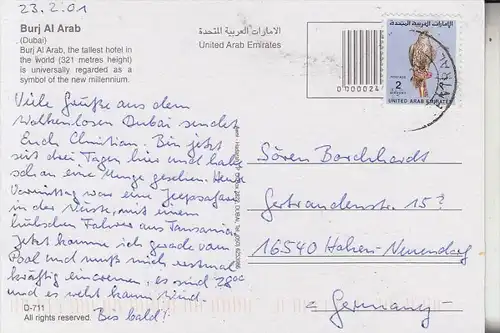 23.2.01
Burj Al Arab
(Dubai)
Burj Al Arab, the tallest hotel in
the world (321 metres height)
is universally regarded as a
symbol of the new millennium.
الامارات العربية المتحدة
United Arab Emirates
0000024
الامارات العربية المتحدة
2
UNITED ARAB EMIRATES
Viele Grüße aus dem
wolkenlosen Dubai sendet
Euch Christian. Bin jetzt
seit drei Tagen hier und habe
schon eine Menge gesehen. Heute
Vormittag war eine Jeepsafari
in der Wüste, mit einem
hübschen Fahrer aus Tansania.
Jetzt komme ich gerade vom
Pool und muß mich erstmal
kräftig eincremen, es sind 28°C
und es weht kaum Wind.
Bis bald!
D-711
All rights reserved.
Sören Borchhardt
Gertrudenstr. 15
16540 Hohen-Neuendorf
Germany